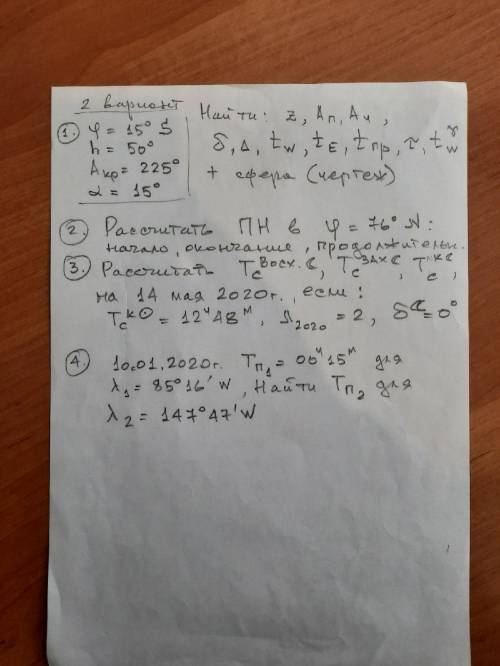 2 вариант
1. φ = 15° S
h = 50°
Aкр = 225°
α = 15°
Найти: z, Aп, Aч,
δ, Δ, tw, tE, tпр, τ, tw♈
+ сфера (чертеж)
2. Рассчитать ПН в φ = 76° N:
начало, окончание, продолжительн.
3. Рассчитать Tс восх. ☾, Tс зах ☾, Tс к ☾,
на 14 мая 2020г., если:
Tс к☉ = 12ч 48м, Л2020 = 2, δ☾ = 0°
4. 10.01.2020г. Tп1 = 00ч 15м для
λ1 = 85°16' W, Найти Tп2 для
λ2 = 147°47' W